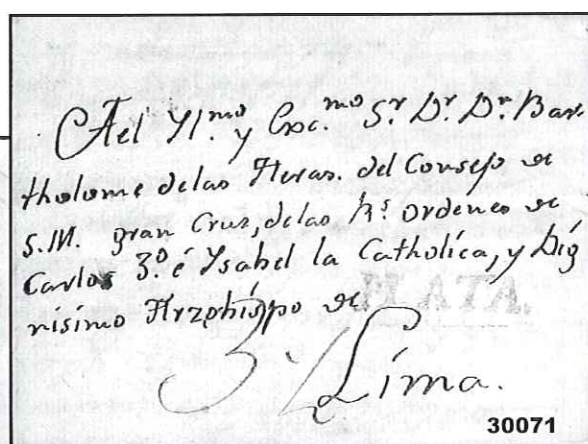 Al Yl.mo y Exc.mo S.r D.r D.n Bar
tholome delas Heras. del Consejo de
S.M. gran Cruz, delas R.s Ordenes de
Carlos 3.o é Ysabel la Catholica, y Dig
nisimo Arzobispo de
Lima.
30071